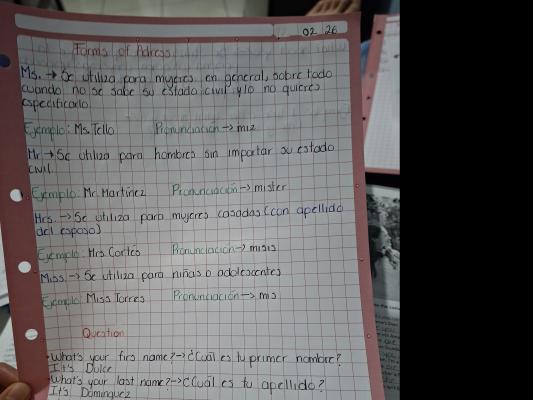 02 26
Forms of Adress
Ms. → Se utiliza para mujeres en general, sobre todo
cuando no se sabe su estado civil y/o no quieres
especificarlo
Ejemplo: Ms. Tello Pronunciación → miz
Mr → Se utiliza para hombres sin importar su estado
civil.
Ejemplo: Mr. Martínez Pronunciación → mister
Mrs. → Se utiliza para mujeres casadas (con apellido
del esposo)
Ejemplo: Mrs Cortés Pronunciación → misis
Miss → Se utiliza para niñas o adolescentes
Ejemplo: Miss Torres Pronunciación → mis
Question
• What's your firs name? → ¿Cuál es tu primer nombre?
It's Dulce
• What's your last name? → ¿Cuál es tu apellido?
It's Dominguez